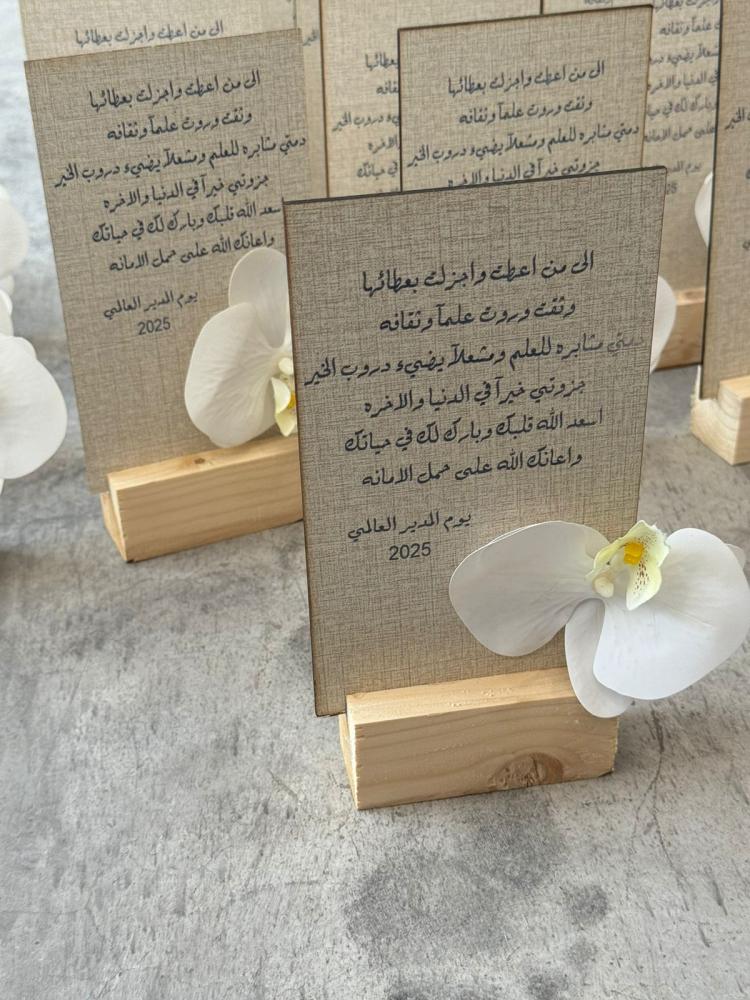 الى من اعطت واجزلت بعطائها
وثقت وروت علماً وثقافه
دمتي مثابره للعلم ومشعلاً يضيء دروب الخير
جزوتي خيراً في الدنيا والاخره
اسعد الله قلبك وبارك لك في حياتك
واعانك الله على حمل الامانه
يوم المدير العالمي
2025
الى من اعطت واجزلت بعطائها
وثقت وروت علماً وثقافه
دمتي مثابره للعلم ومشعلاً يضيء دروب الخير
جزوتي خيراً في الدنيا والاخره
اسعد الله قلبك وبارك لك في حياتك
واعانك الله على حمل الامانه
يوم المدير العالمي
2025
الى من اعطت واجزلت بعطائها
وثقت وروت علماً وثقافه
دمتي مثابره للعلم ومشعلاً يضيء دروب الخير
جزوتي خيراً في الدنيا والاخره
الى من اعطت واجزلت بعطائها